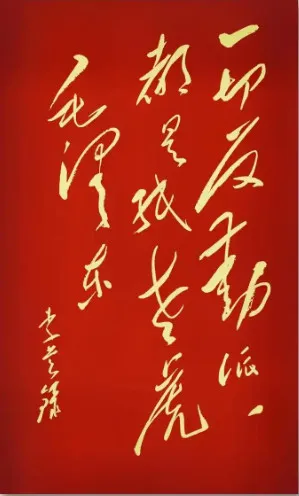 一切反动派
都是纸老虎
毛泽东